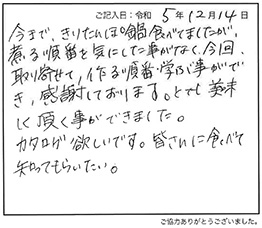 ご記入日：令和 5年12月14日
今まで、きりたんぽ鍋食べてましたが、
煮る順番を気にした事がなく、今回、
取り寄せて、作る順番学ぶ事がで
き、感謝しております。とても美味
しく頂く事ができました。
カタログ欲しいです。皆さんに食べて
知ってもらいたい。
ご協力ありがとうございました。